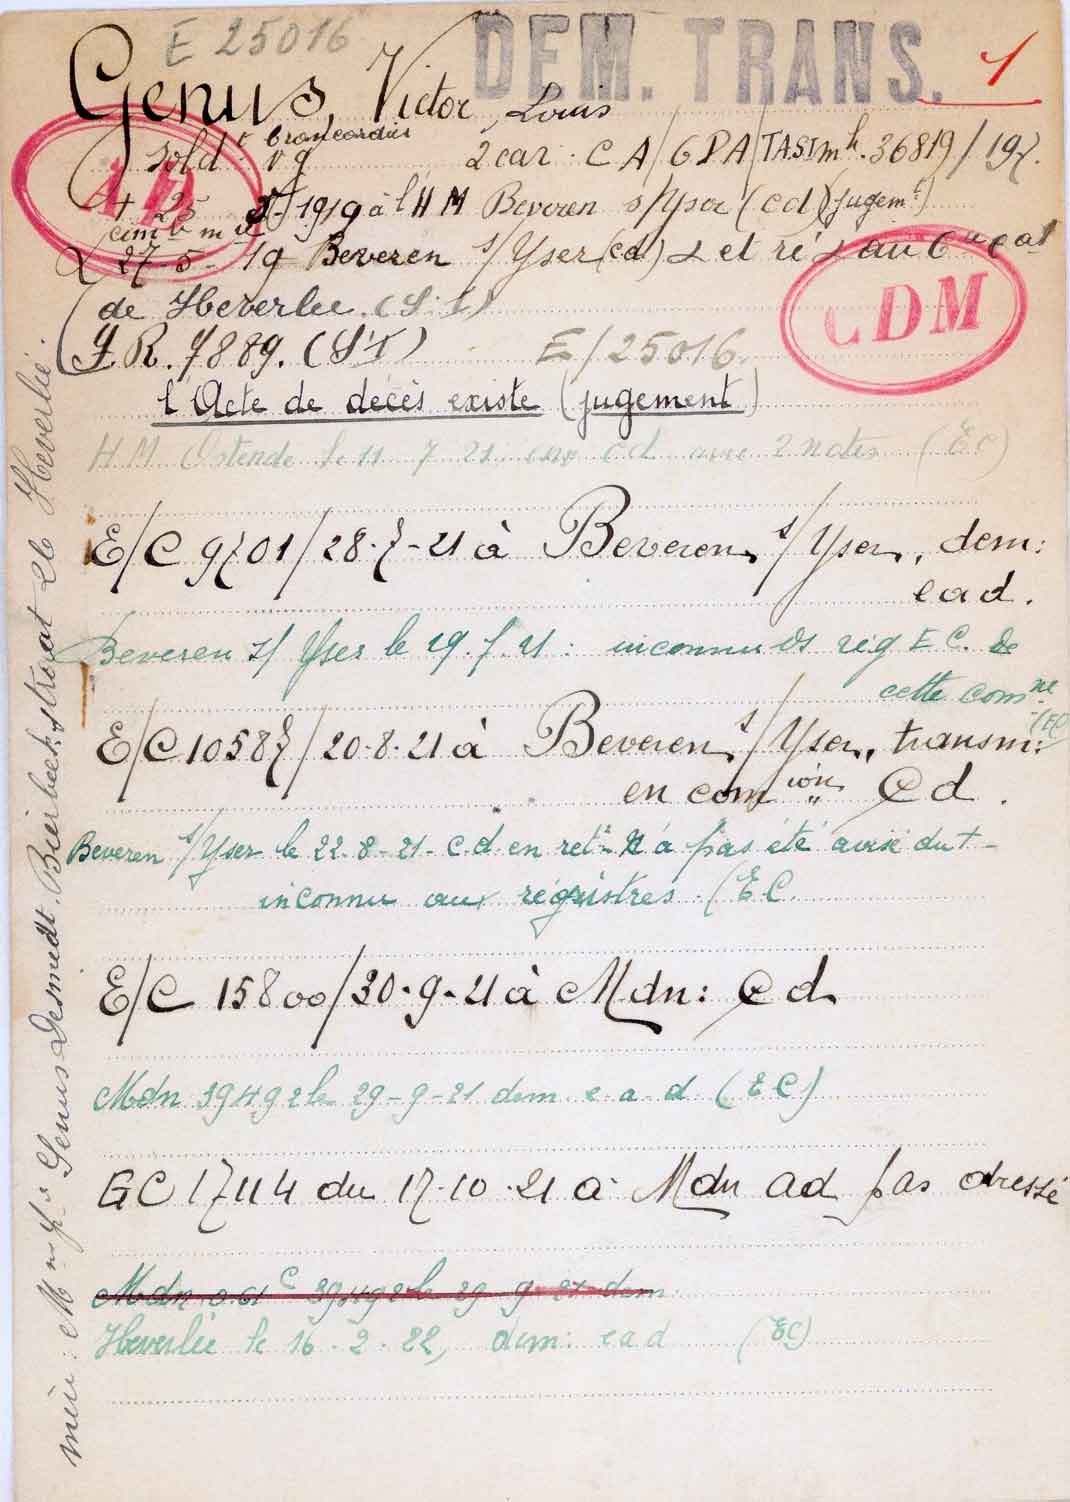 E 25016
DEM. TRANS.
1
Genus, Victor, Louis
sold t brancardier
2 car: C A/6 DA/TASIm h. 36819/197.
AD
+ 25 5-1919 à l'HM Beveren s/Yser (cd) (jugemt)
cim b m
27-5-19 Beveren s/Yser (cd) et ré au
de Heverlee. (S.I)
CDM
J.R. 7889. (SI) E/25016.
l'Acte de décès existe (jugement)
HM Ostende le 11 7 21 env cd avec 2 notes (EC)
E/C 9701/28-7-21 à Beveren s/Yser, dem:
e a d.
Beveren s/Yser le 29.7.21: inconnu ds reg E C. de
cette comne. (EC)
E/C 10587/20-8-21 à Beveren s/Yser, transm:
en comion Cd.
Beveren s/Yser le 22-8-21- c.d en rett. N'a pas été avisé du +-
inconnu aux registres. (EC.
E/C 15800/30-9-21 à Mdn: Cd.
Mdn 39492 le 29-9-21 dem. e-a-d (EC)
EC 17114 du 17-10-21 à Mdn ad pas dressé
Mdn 39492 le 29 9 21 dem
Heverlée le 16-2-22, dem: e a d (EC)
mère: Genus Desmedt. Bierbeekstraat 26 Heverlé.